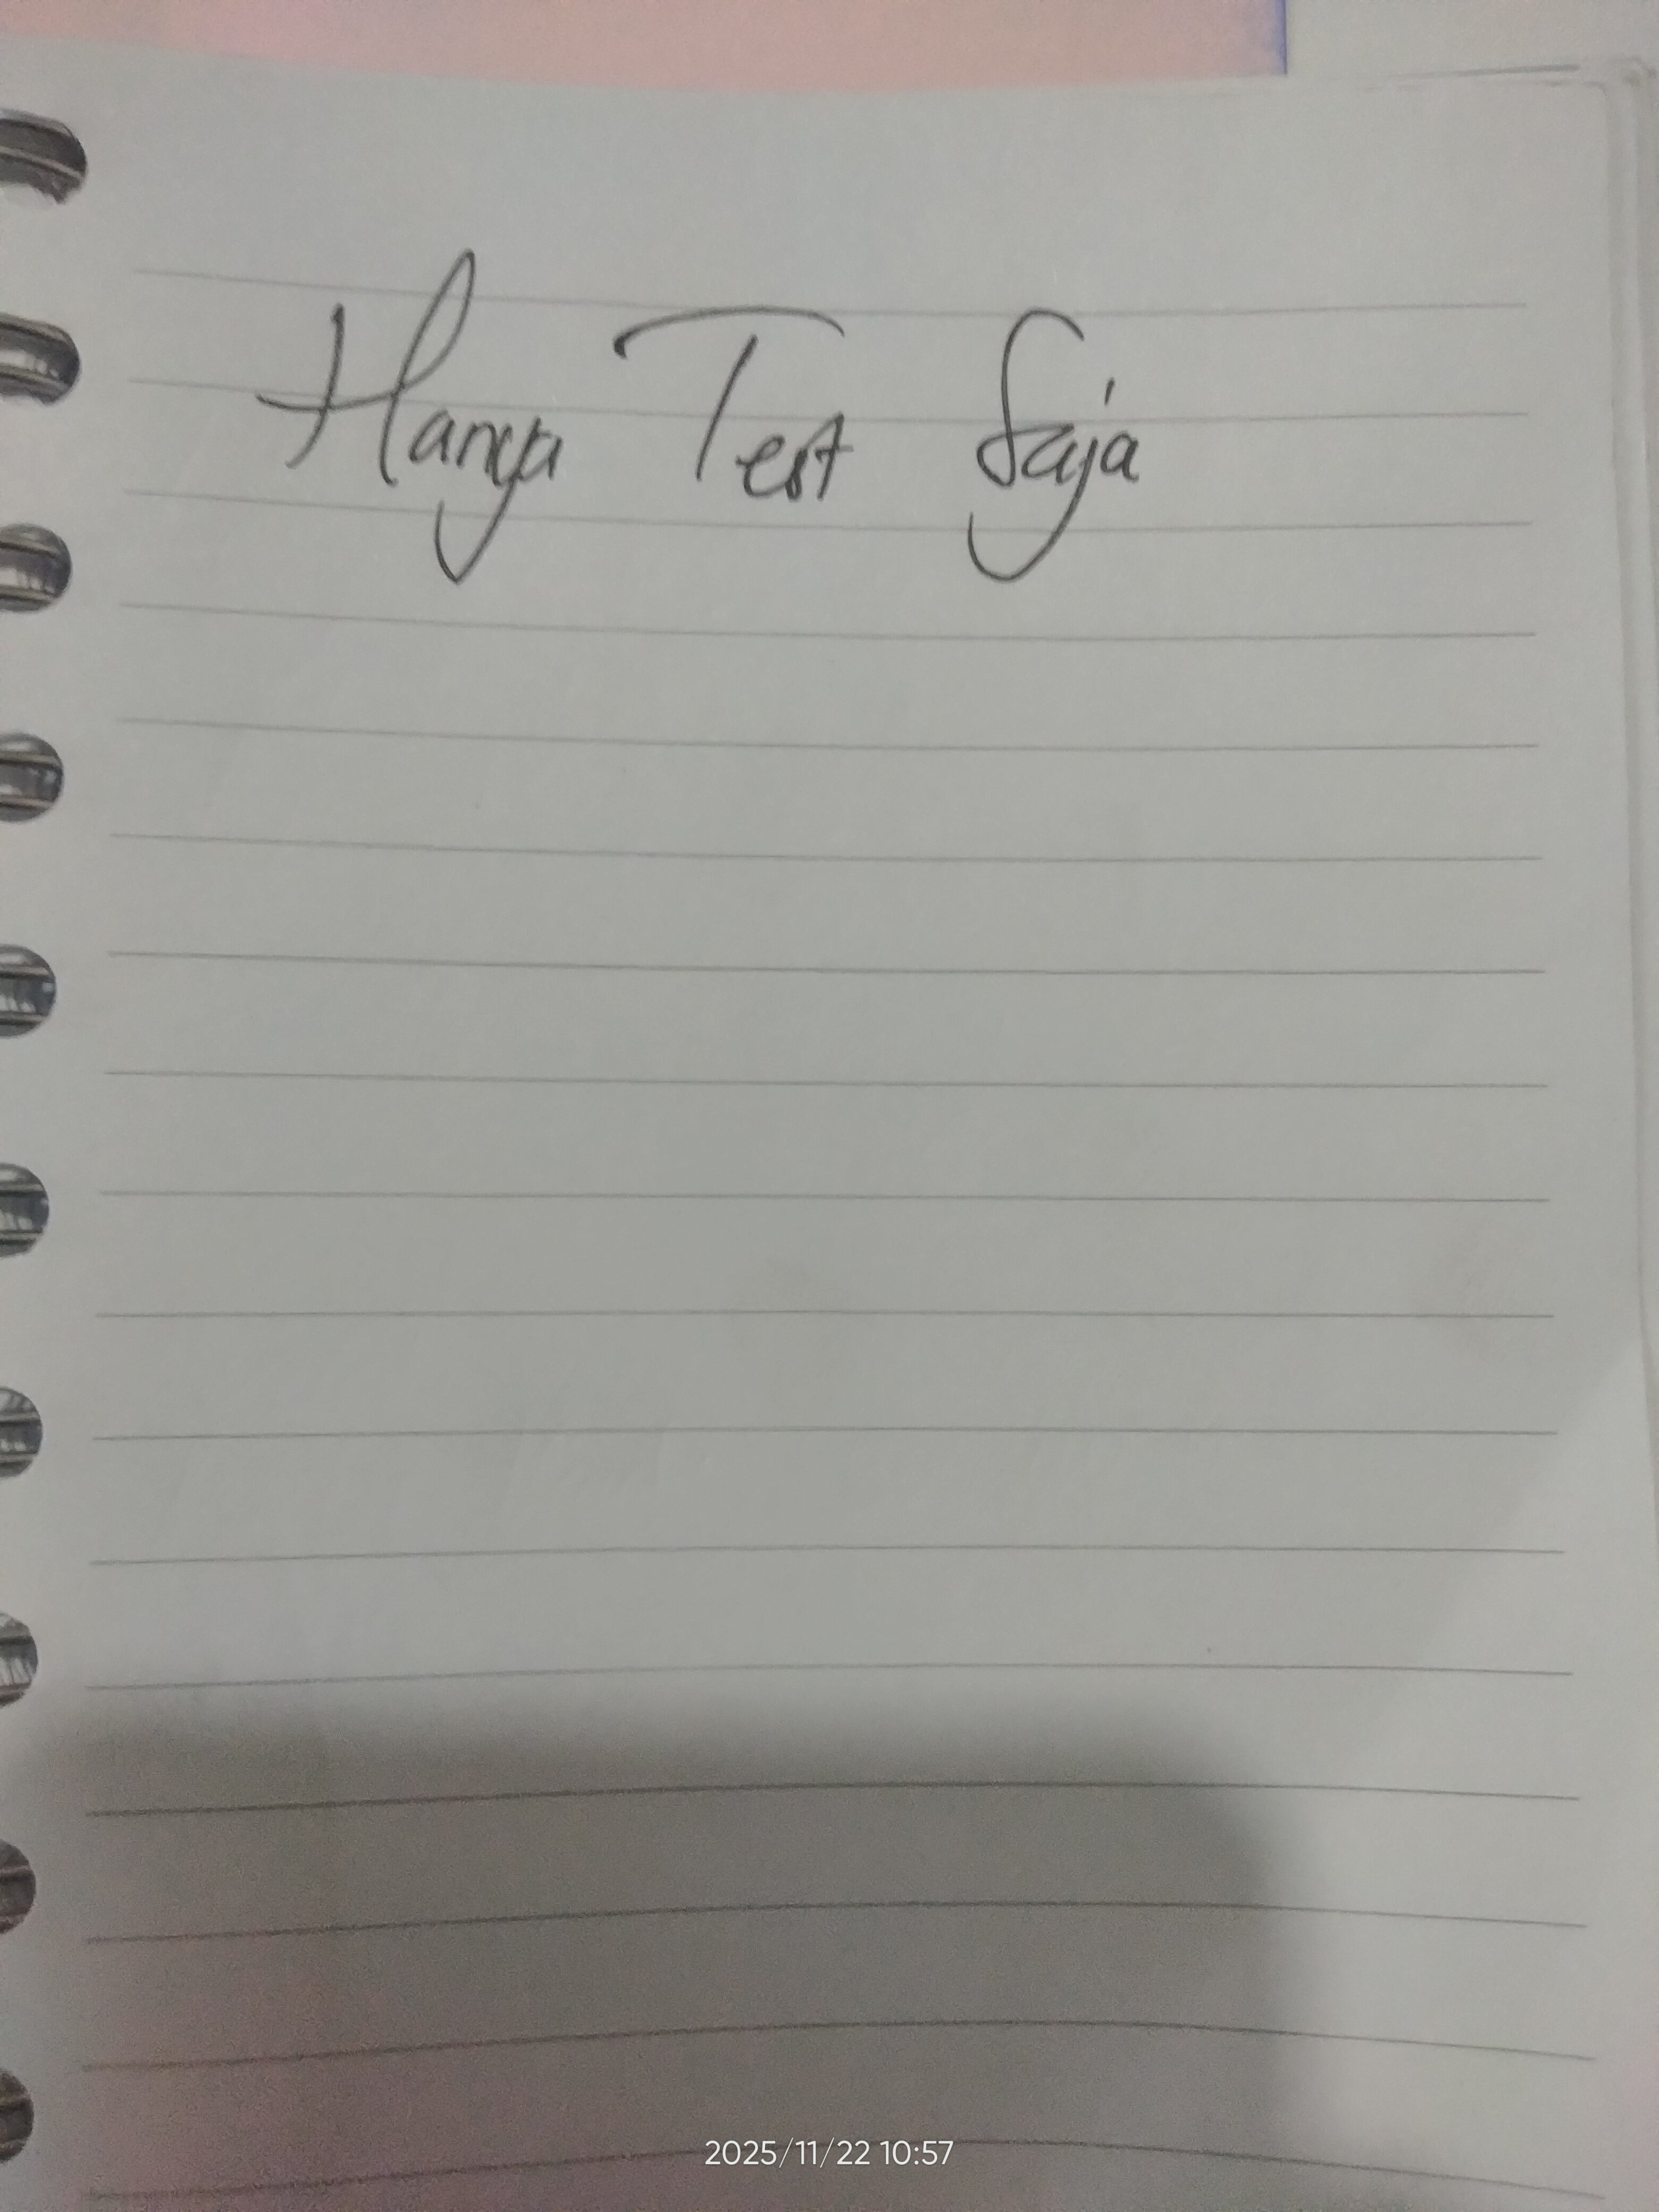 Hanya Test Saja
2025/11/22 10:57